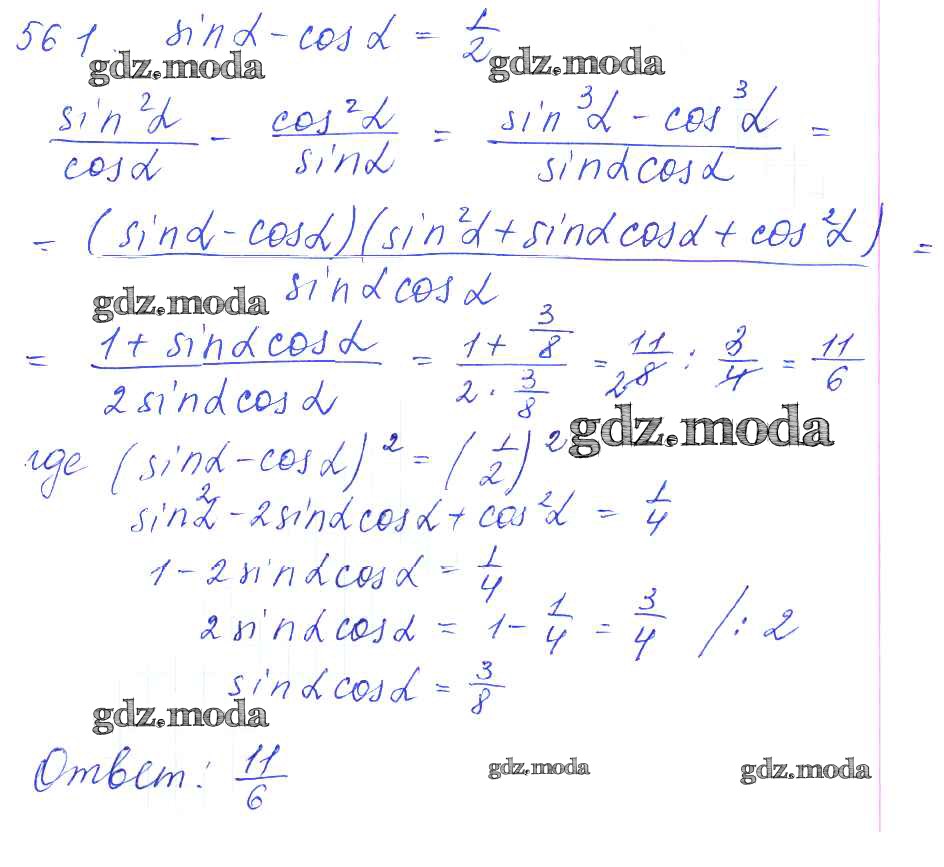 561 sinα - cosα = 1/2
gdz.moda gdz.moda
sin²α/cosα - cos²α/sinα = (sin³α - cos³α)/(sinαcosα) =
= (sinα - cosα)(sin²α + sinαcosα + cos²α)/(sinαcosα) =
gdz.moda
= (1 + sinαcosα)/(2sinαcosα) = (1 + 3/8)/(2 · 3/8) = 11/8 : 3/4 = 11/6
gdz.moda
где (sinα - cosα)² = (1/2)²
sin²α - 2sinαcosα + cos²α = 1/4
1 - 2sinαcosα = 1/4
2sinαcosα = 1 - 1/4 = 3/4 /: 2
sinαcosα = 3/8
gdz.moda
Ответ: 11/6
gdz.moda gdz.moda